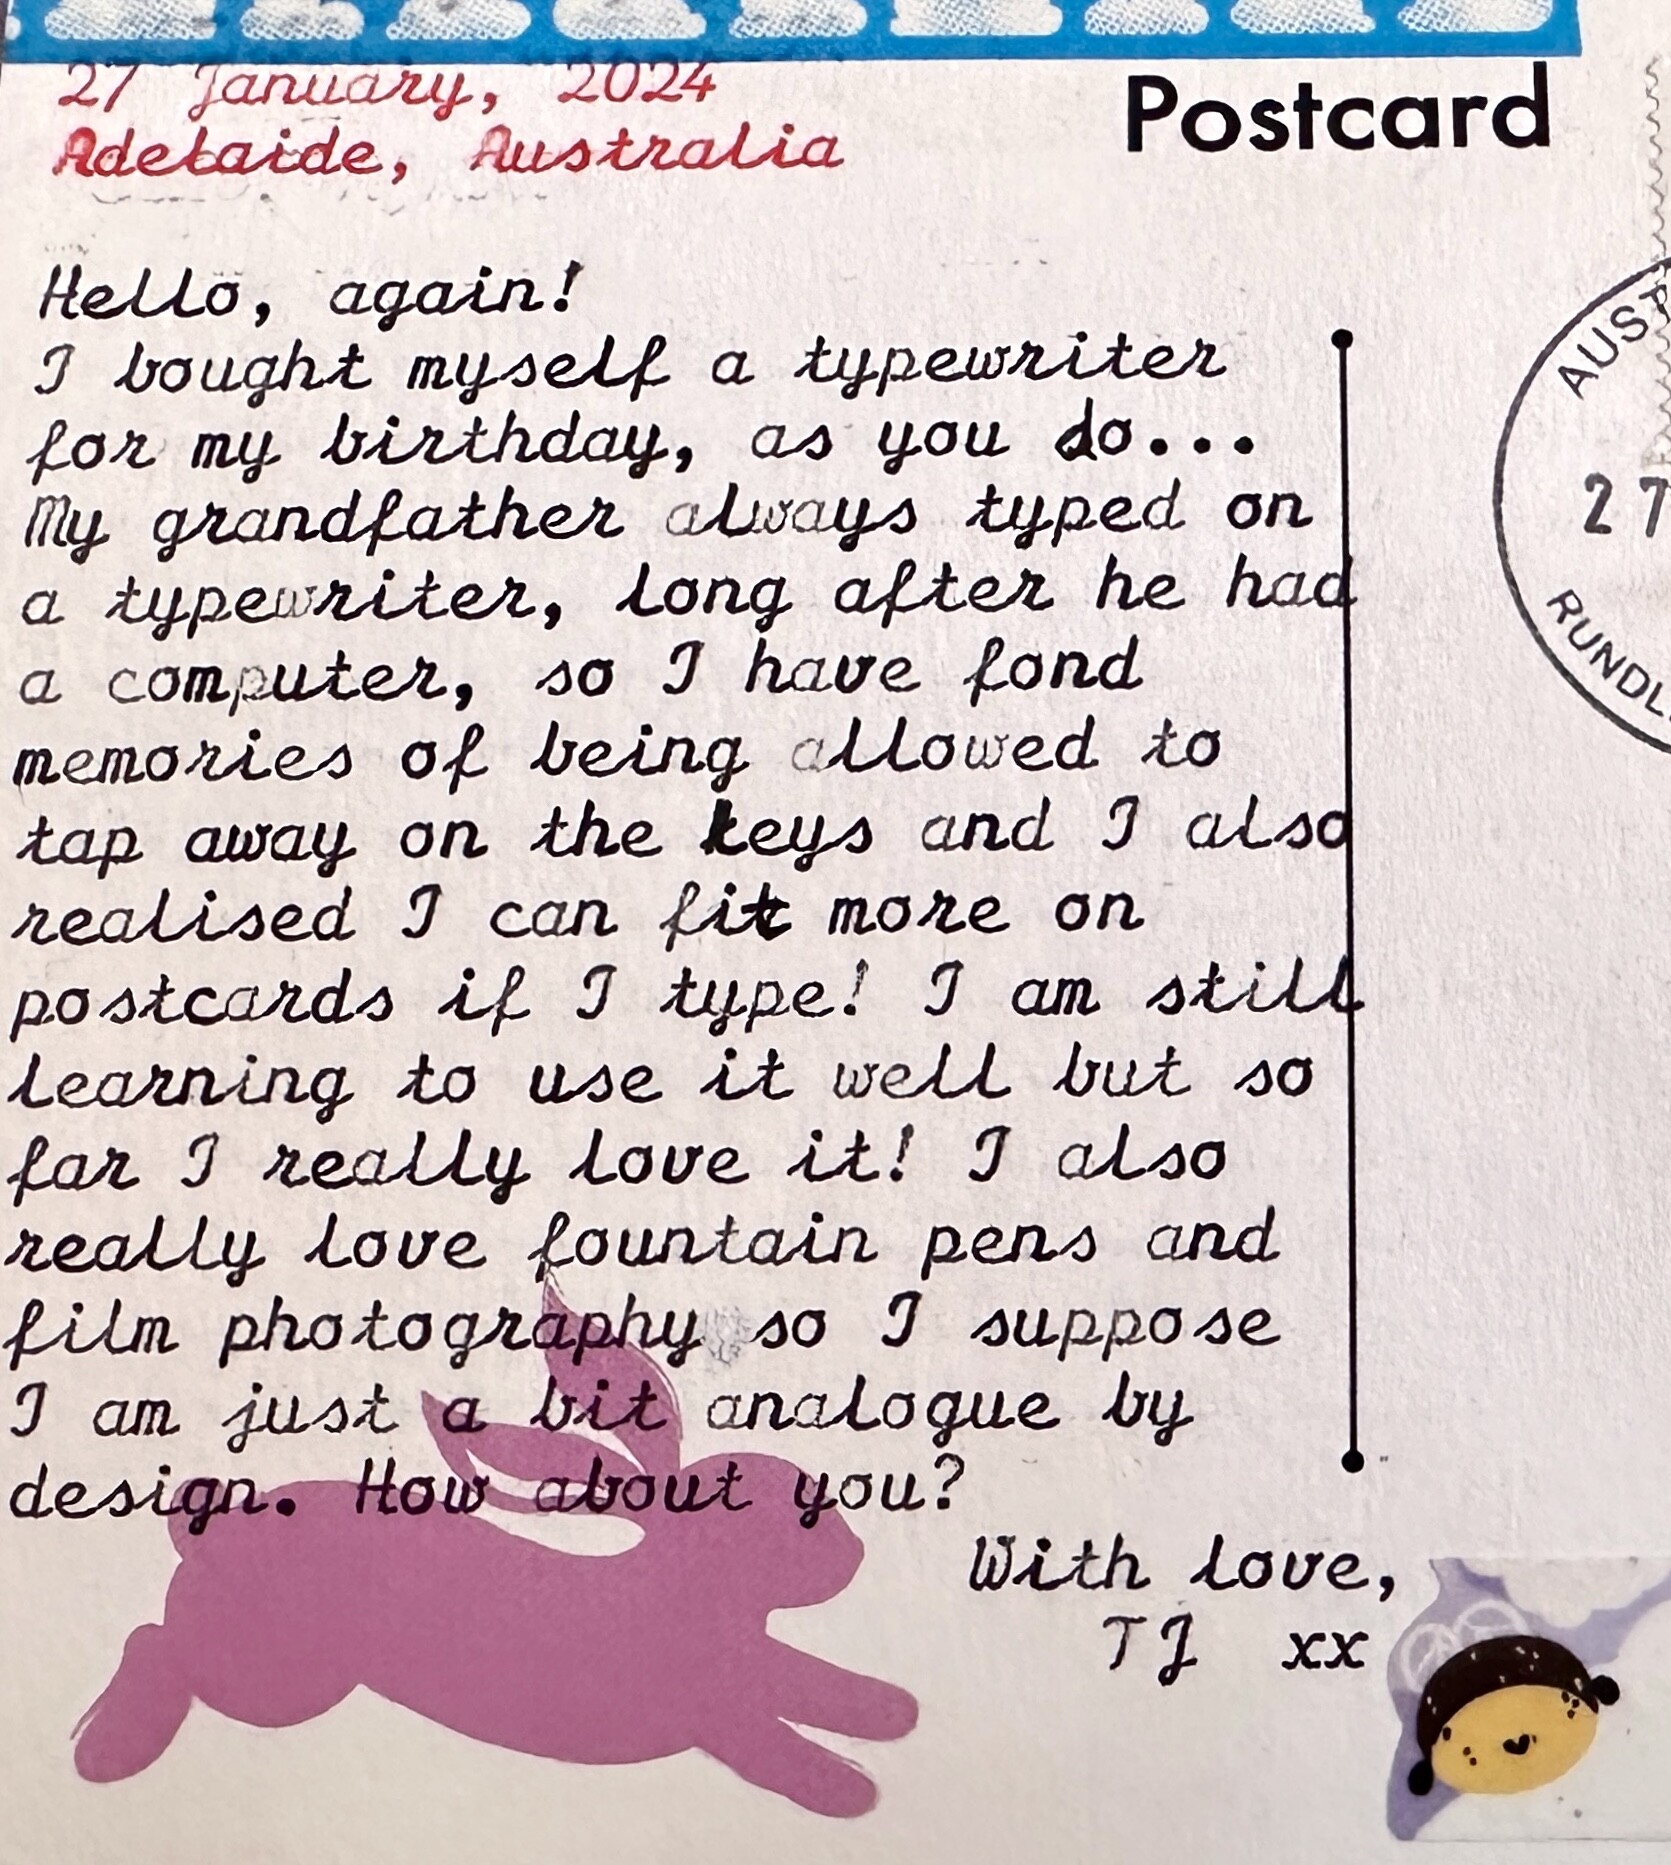 27 January, 2024
Adelaide, Australia
Postcard
Hello, again!
I bought myself a typewriter
for my birthday, as you do...
My grandfather always typed on
a typewriter, long after he had
a computer, so I have fond
memories of being allowed to
tap away on the keys and I also
realised I can fit more on
postcards if I type! I am still
learning to use it well but so
far I really love it! I also
really love fountain pens and
film photography so I suppose
I am just a bit analogue by
design. How about you?
With love,
TJ xx
27